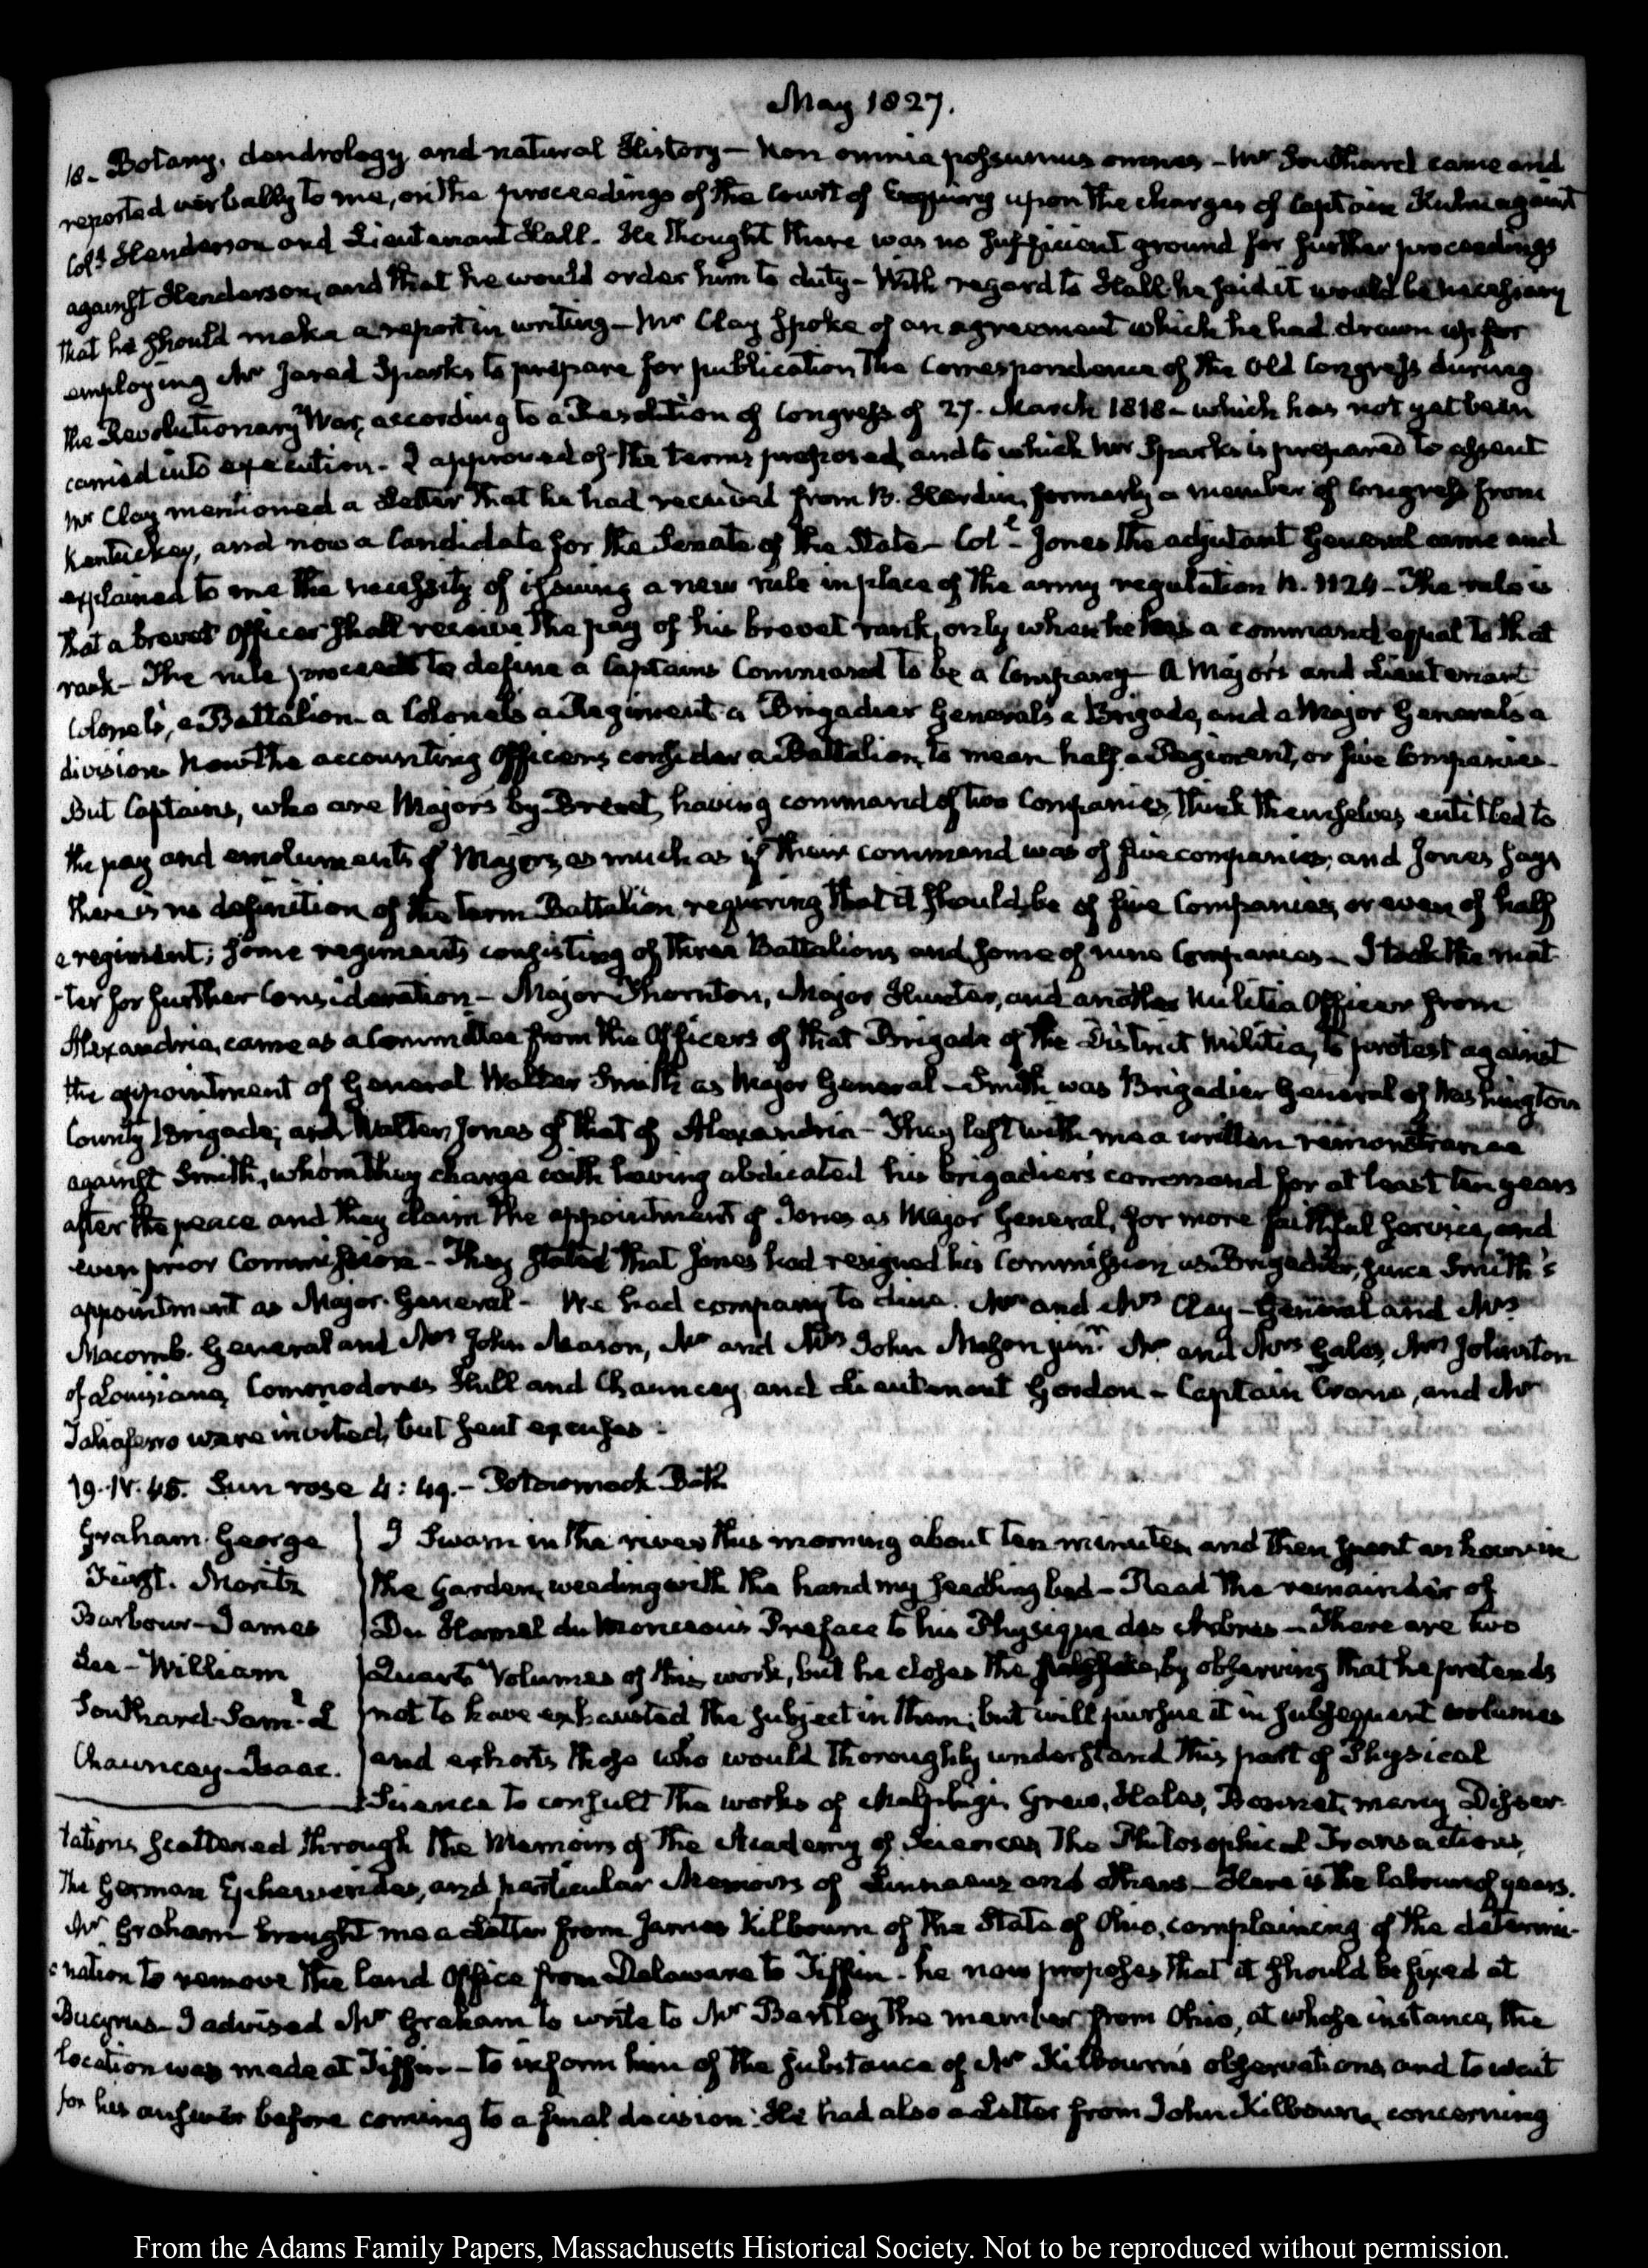 May 1827.
18- Botany, dendrology and natural History – Non omnia possumus omnes – Mr Southard came and
reported verbally to me, on the proceedings of the Court of Enquiry upon the charges of Captain Kuhn against
Colt Henderson and Lieutenant Hall. He thought there was no sufficient ground for further proceedings
against Henderson, and that he would order him to duty – With regard to Hall he said it would be necessary
that he should make a report in writing – Mr Clay spoke of an agreement which he had drawn up for
employing Mr Jared Sparks to prepare for publication the Correspondence of the Old Congress during
the Revolutionary War, according to a Resolution of Congress of 27. March 1818 – which has not yet been
carried into execution. I approved of the terms proposed, and to which Mr Sparks is prepared to assent
Mr Clay mentioned a Letter that he had received from B. Hardin, formerly a member of Congress from
Kentuckey, and now a Candidate for the Senate of the State – Col Jones the adjutant General came and
explained to me the necessity of issuing a new rule in place of the army regulation N. 1124 – The rule is
that a brevet Officer shall receive the pay of his brevet rank, only when he has a command equal to that
rank – The rule proceeds to define a Captains Command to be a Company – A Major's and Lieutenant
Colonel's, a Battalion – a Colonel's a Regiment a Brigadier General's a Brigade, and a Major General's a
division. Now the accounting Officers consider a Battalion, to mean half a Regiment, or five Companies –
But Captains, who are Majors by Brevet, having command of two Companies, think themselves entitled to
the pay and emoluments of Majors, as much as if their command was of five companies; and Jones says
there is no definition of the term Battalion requiring that it should be of five Companies, or even of half
a regiment; some regiments consisting of three Battalions and some of nine Companies – I took the mat-
-ter for further Consideration – Major Thornton, Major Hunter, and another Militia Officer from
Alexandria, came as a Committee from the Officers of that Brigade of the District Militia, to protest against
the appointment of General Walter Smith as Major General – Smith was Brigadier General of Washington
County Brigade; and Walter Jones of that of Alexandria – They left with me a written remonstrance
against Smith, whom they charge with having abdicated his brigadier's command for at least ten years
after the peace and they claim the appointment of Jones as Major General, for more faithful service, and
even prior Commission – They stated that Jones had resigned his Commission as Brigadier, since Smith's
appointment as Major-General – We had company to dine. Mr and Mrs Clay – General and Mrs
Macomb. General and Mrs John Mason, Mr and Mrs John Mason junr Mr and Mrs Gales, Mrs Johnston
of Louisiana, Commodores Hull and Chauncey, and Lieutenant Gordon – Captain Crane, and Mr
Taliaferro were invited, but sent excuses –
19. IV. 45. Sun rose 4:49. – Potowmack Bath
Graham. George
Furst. Moritz
Barbour – James
Lee – William
Southard. Saml L
Chauncey – Isaac.
I swam in the river this morning about ten minutes, and then spent an hour in
the Garden, weeding with the hand my seedling bed – Read the remainder of
Du Hamel du Monceau's Preface to his Physique des Arbres – There are two
Quarto Volumes of this work, but he closes the by observing that he pretends
not to have exhausted the subject in them; but will pursue it in subsequent volumes
and exhorts those who would thoroughly understand this part of Physical
Science to consult the works of Malpighi, Grew, Hales, Bonnet, many Disser-
tations scattered through the Memoirs of the Academy of Sciences, The Philosophical Transactions,
The German Ephemerides, and particular Memoirs of Linnaeus and others – Here is the labour of years.
Mr Graham brought me a Letter from James Kilbourn of the State of Ohio, complaining of the determi-
-nation to remove the Land Office from Delaware to Tiffin – he now proposes that it should be fixed at
Bucyrus – I advised Mr Graham to write to Mr Bartley the member from Ohio, at whose instance, the
location was made at Tiffin – to inform him of the substance of Mr Kilbourn's observations, and to wait
for his answer before coming to a final decision. He had also a Letter from John Kilbourn, concerning
From the Adams Family Papers, Massachusetts Historical Society. Not to be reproduced without permission.